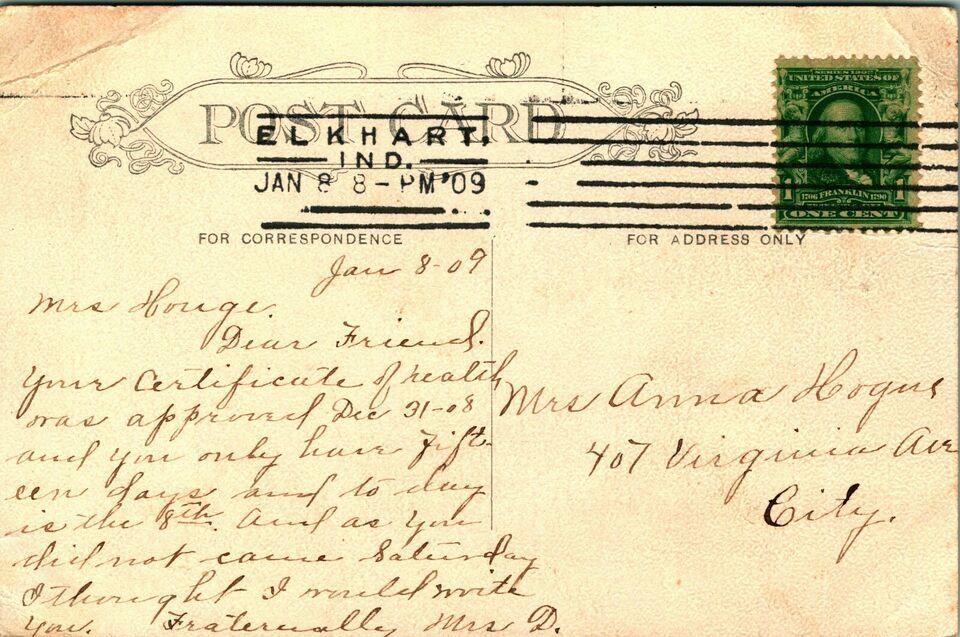 POST CARD
ELKHART,
IND.
JAN 8 8-PM '09
SERIES 1902
UNITED STATES OF
AMERICA
1 1706 FRANKLIN 1790 1
ONE CENT
FOR CORRESPONDENCE
FOR ADDRESS ONLY
Jan 8-09
Mrs Houge.
Dear Friend.
Your Certificate of health
was approved Dec 31-08
and you only have Fift-
een days and to day
is the 8th. And as you
did not come Saturday
I thought I would write
you. Fraternally Mrs D.
Mrs Anna Hogue
407 Virginia Ave
City.